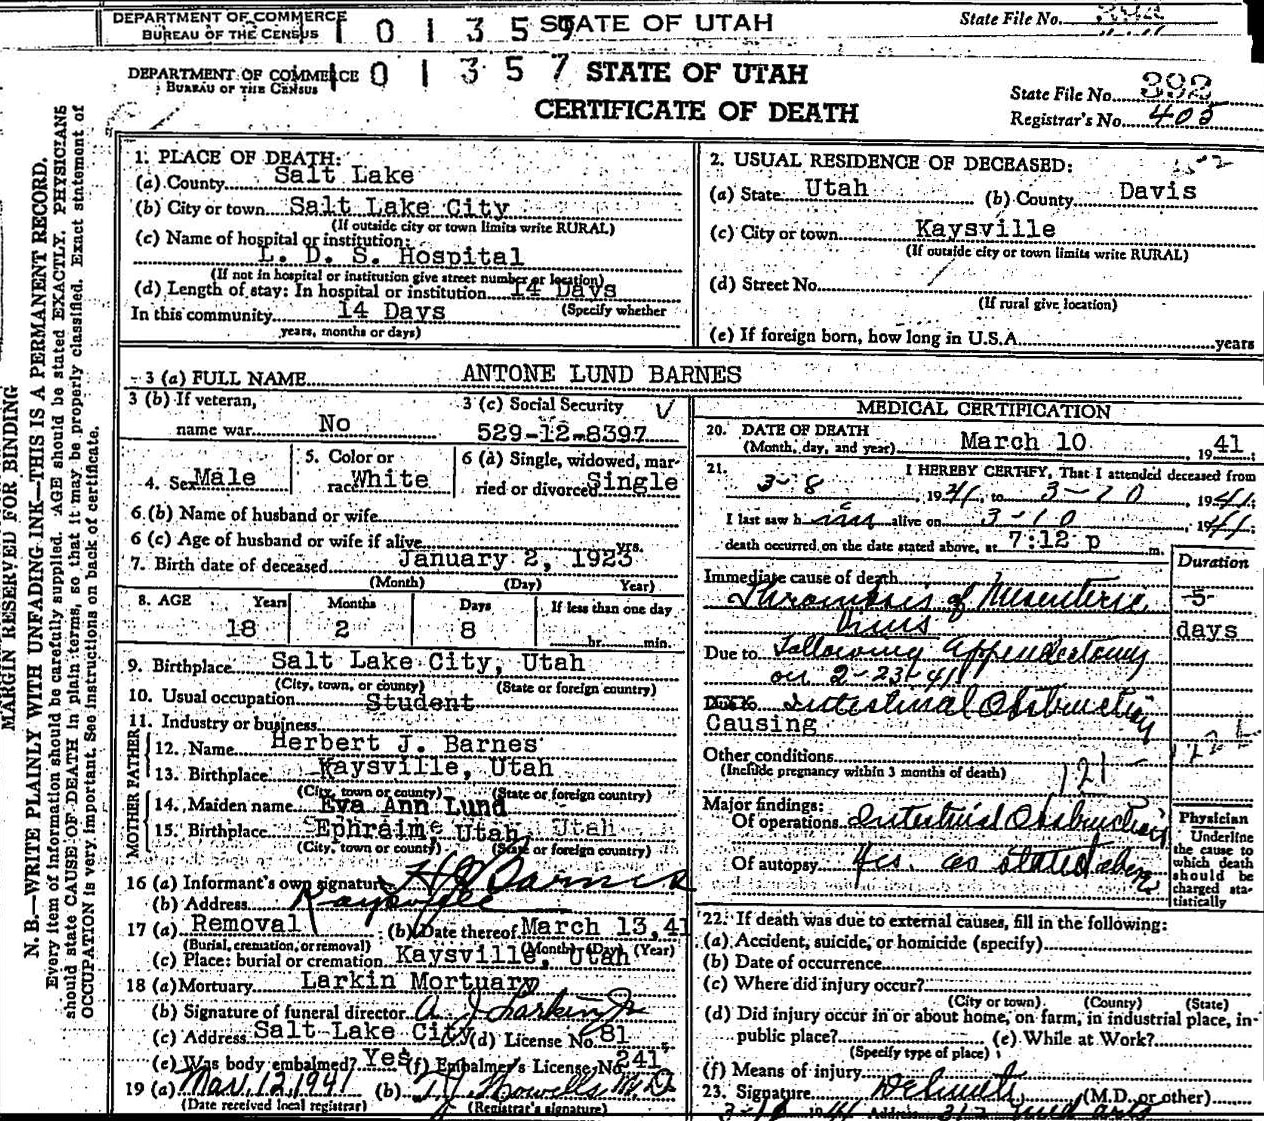 DEPARTMENT OF COMMERCE
BUREAU OF THE CENSUS
1 0 1 3 5 9 STATE OF UTAH
State File No. 394
DEPARTMENT OF COMMERCE
BUREAU OF THE CENSUS
1 0 1 3 5 7 STATE OF UTAH
CERTIFICATE OF DEATH
State File No. 392
Registrar's No. 405
MARGIN RESERVED FOR BINDING
N. B.—WRITE PLAINLY WITH UNFADING INK—THIS IS A PERMANENT RECORD.
Every item of information should be carefully supplied. AGE should be stated EXACTLY. PHYSICIANS
should state CAUSE OF DEATH in plain terms, so that it may be properly classified. Exact statement of
OCCUPATION is very important. See instructions on back of certificate.
1. PLACE OF DEATH:
(a) County Salt Lake
(b) City or town Salt Lake City
(If outside city or town limits write RURAL)
(c) Name of hospital or institution:
L. D. S. Hospital
(If not in hospital or institution give street number or location)
(d) Length of stay: In hospital or institution 14 Days
(Specify whether
In this community 14 Days
years, months or days)
2. USUAL RESIDENCE OF DECEASED:
(a) State Utah (b) County Davis
(c) City or town Kaysville
(If outside city or town limits write RURAL)
(d) Street No.
(If rural give location)
(e) If foreign born, how long in U.S.A. years
3 (a) FULL NAME ANTONE LUND BARNES
3 (b) If veteran,
name war No
3 (c) Social Security
529-12-8397
4. Sex Male
5. Color or
race White
6 (a) Single, widowed, mar-
ried or divorced Single
6 (b) Name of husband or wife
6 (c) Age of husband or wife if alive yrs.
7. Birth date of deceased January 2, 1923
(Month) (Day) Year)
8. AGE Years Months Days If less than one day
18 2 8 hr. min.
9. Birthplace Salt Lake City, Utah
(City, town, or county) (State or foreign country)
10. Usual occupation Student
11. Industry or business
FATHER
12. Name Herbert J. Barnes
13. Birthplace Kaysville, Utah
(City, town or county) (State or foreign country)
MOTHER
14. Maiden name Eva Ann Lund
15. Birthplace Ephraim, Utah, Utah
(City, town or county) (State or foreign country)
16 (a) Informant's own signature H J Barnes
(b) Address Kaysville
17 (a) Removal (b) Date thereof March 13, 41
(Burial, cremation, or removal) (Month) (Day) (Year)
(c) Place: burial or cremation Kaysville, Utah
18 (a) Mortuary Larkin Mortuary
(b) Signature of funeral director A J Larkin Jr
(c) Address Salt Lake City (d) License No. 81
(e) Was body embalmed? Yes (f) Embalmer's License No. 241
19 (a) Mar. 12, 1941 (b) T. J. Howells M.D.
(Date received local registrar) (Registrar's signature)
MEDICAL CERTIFICATION
20. DATE OF DEATH
(Month, day, and year) March 10, 1941
21. I HEREBY CERTIFY, That I attended deceased from
3-8, 1941, to 3-10, 1941;
I last saw him alive on 3-10, 1941;
death occurred on the date stated above, at 7:12 p m.
Duration
Immediate cause of death
Thrombosis of Mesenteric 5
Veins days
Due to Following Appendectomy
on 2-23-41
Due to Intestinal Obstruction
Causing
Other conditions
(Include pregnancy within 3 months of death)
121
Major findings:
Of operations Intestinal Obstruction
Of autopsy Yes. as stated above
Physician
Underline
the cause to
which death
should be
charged sta-
tistically
22. If death was due to external causes, fill in the following:
(a) Accident, suicide, or homicide (specify)
(b) Date of occurrence
(c) Where did injury occur?
(City or town) (County) (State)
(d) Did injury occur in or about home, on farm, in industrial place, in-
public place? (e) While at Work?
(Specify type of place)
(f) Means of injury
23. Signature (M.D. or other)
1941 Address Med arts